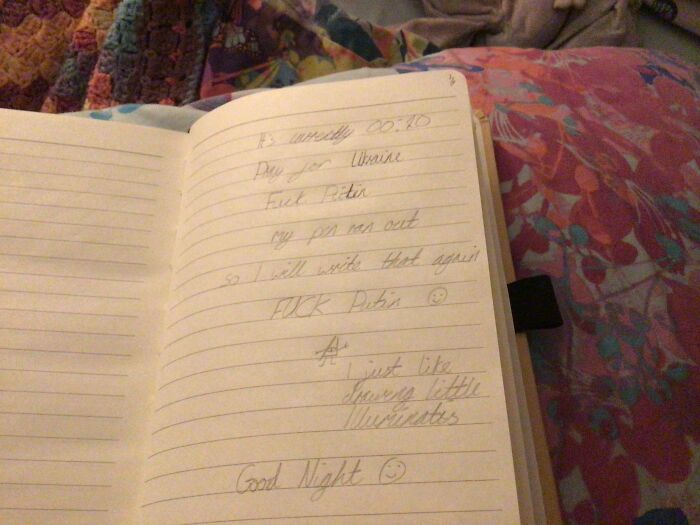 It's currently 00:10
Pray for Ukraine
Fuck Putin
my pen ran out
so I will write that again
FUCK Putin ☺
I just like
drawing little
Illuminates
Good Night ☺